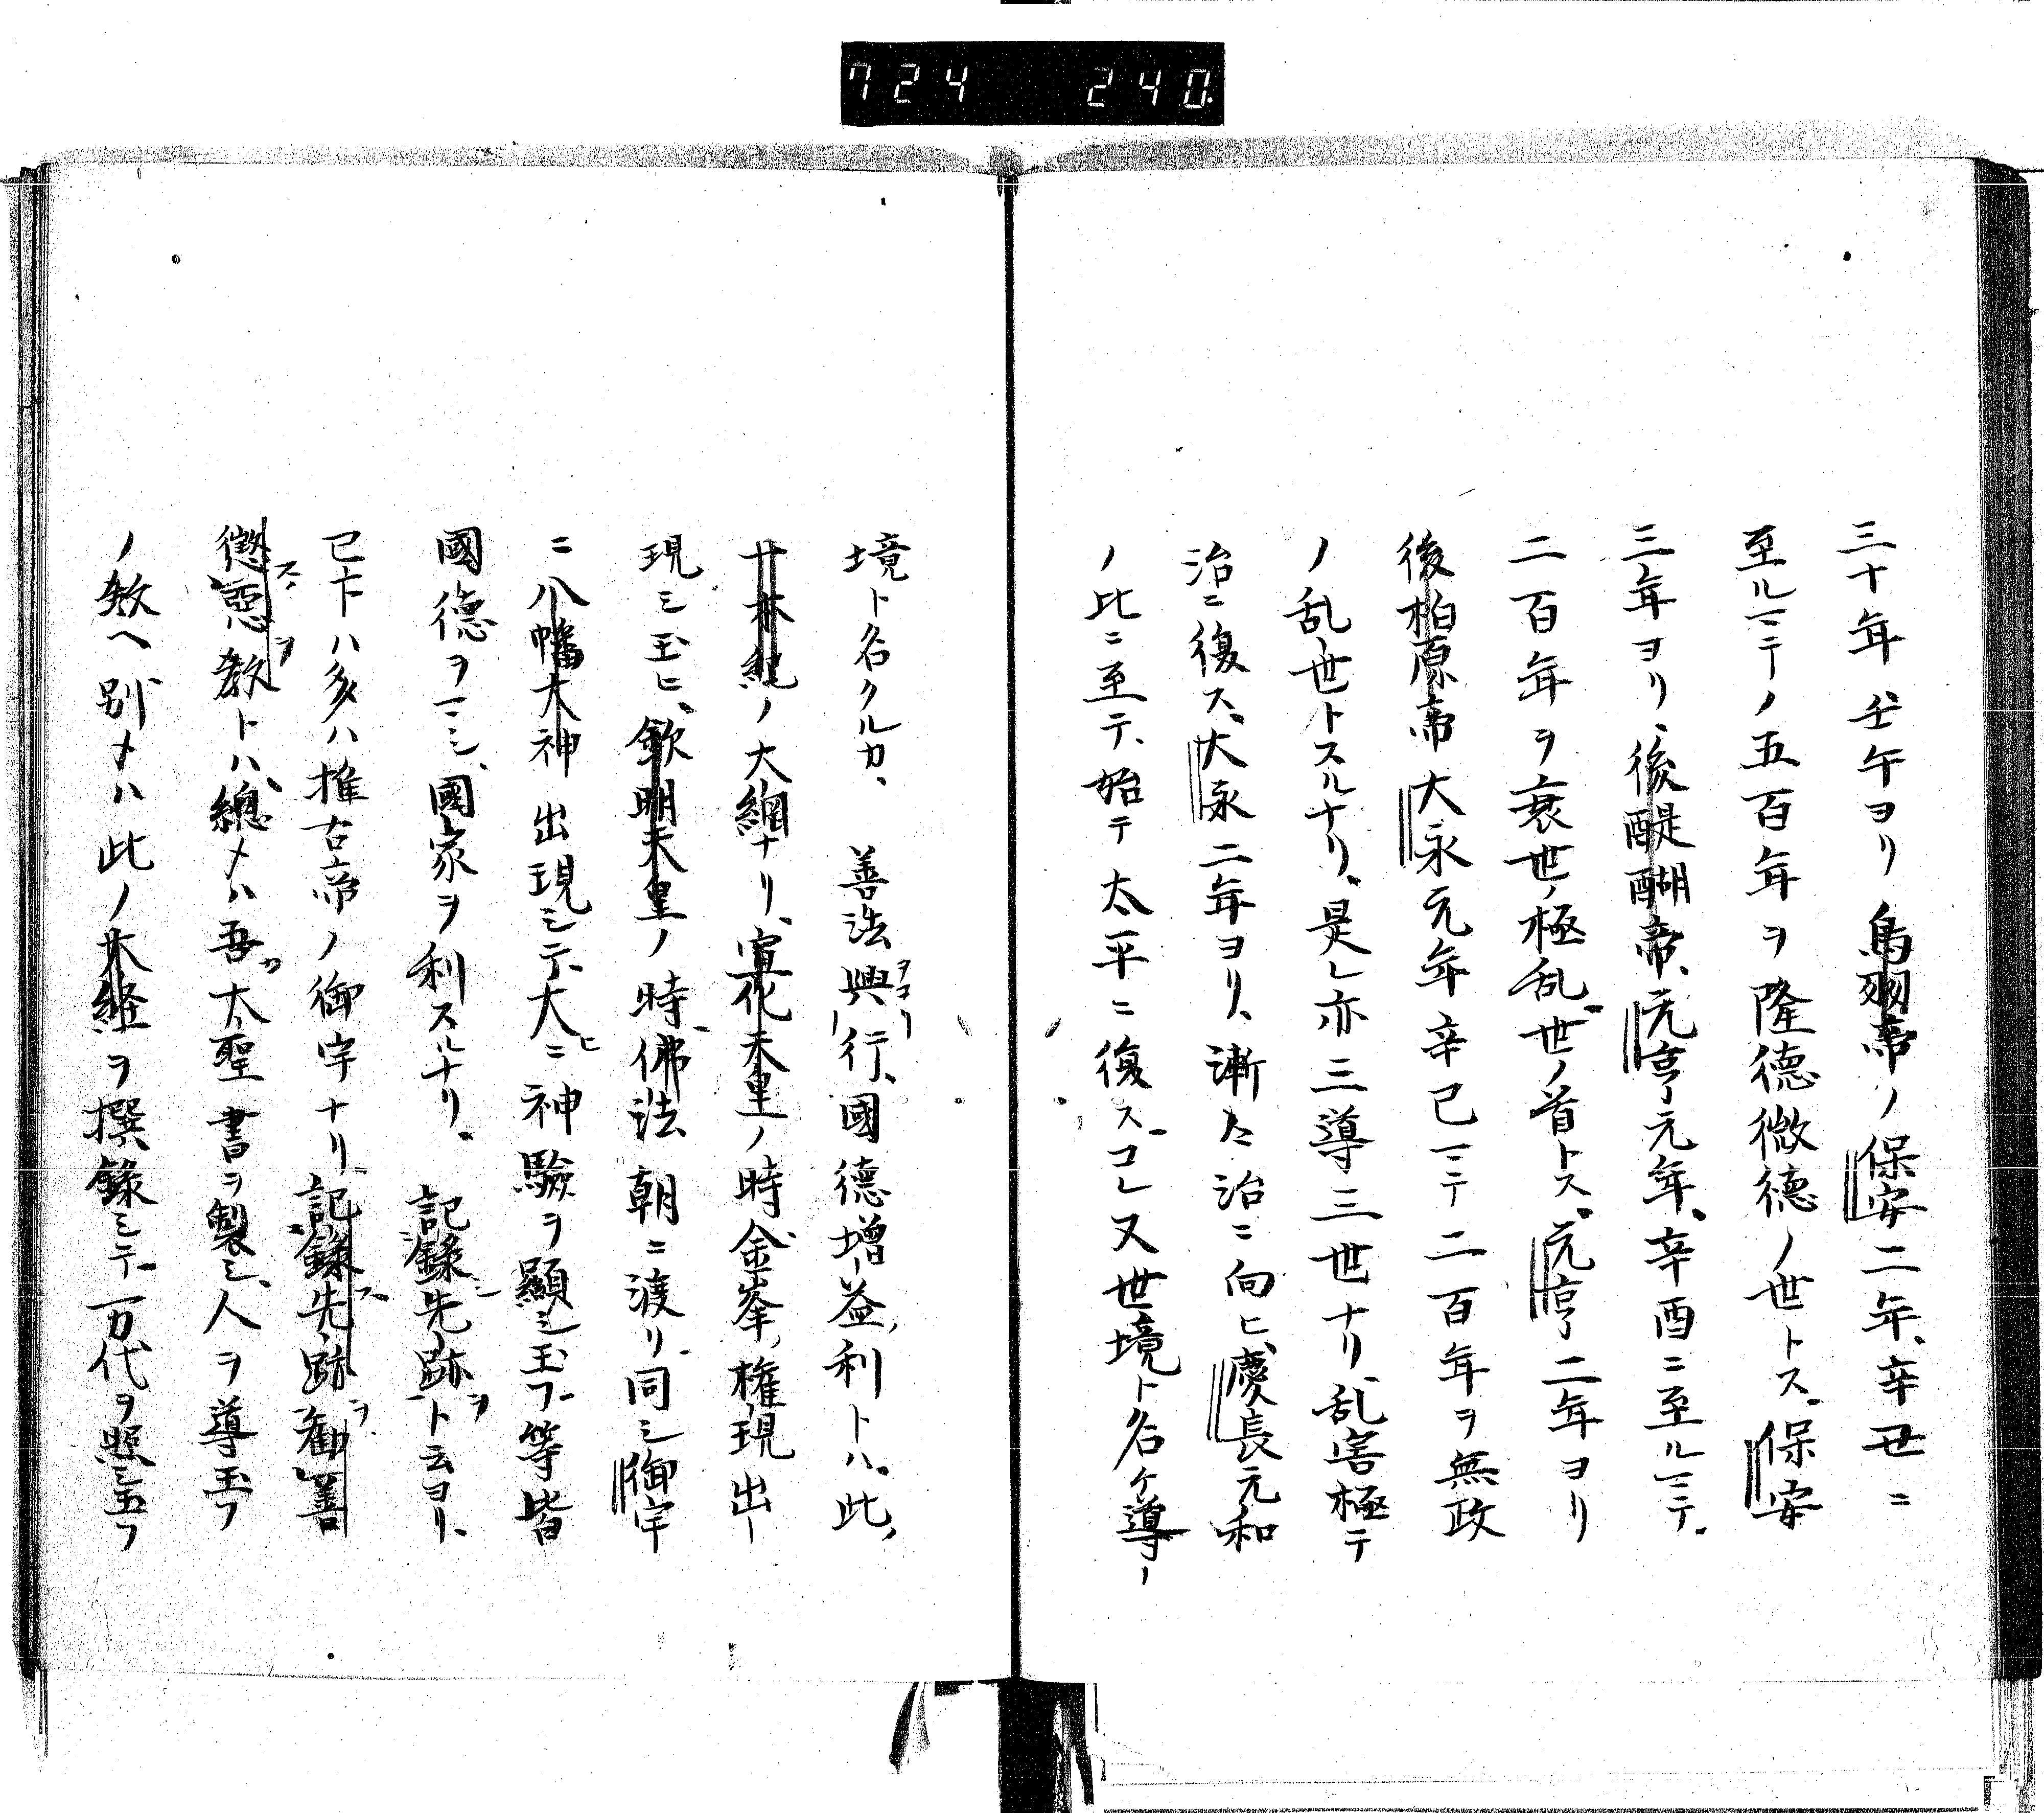 724 240
三十年壬午ヨリ鳥羽帝ノ保安二年、辛丑ニ
至ルマテノ五百年ヲ隆德微德ノ世トス。保安
三年ヨリ、後醍醐帝、元亨元年、辛酉ニ至ルマテ。
二百年ヲ衰世ノ極乱世ノ首トス。元亨二年ヨリ
後柏原帝大永元年辛巳マテ二百年ヲ無政
ノ乱世トスルナリ、是レ亦三導三世ナリ、乱害極テ
治ニ復ス、大永二年ヨリ、漸々治ニ向ヒ、慶長元和
ノ比ニ至テ、始テ太平ニ復ス。コレ又世境ト名ケ導ノ
境ト名クルカ、善法興行、國德増益、利トハ。此ノ
廿林紀ノ大綱ナリ、宣化天皇ノ時、金峯権現出
現シ玉ヒ、欽明天皇ノ時、佛法朝ニ渡リ、同シ御宇
ニ八幡大神出現シテ、大ニ神驗ヲ顯シ玉フ、等皆
國德ヲマシ、國家ヲ利スルナリ。記録先跡ヲト云ヨリ、
已下ハ多ハ推古帝ノ御宇ナリ、記録先跡ヲ勸善
懲惡ヲ教トハ、總メハ吾カ太聖書ヲ製シ、人ヲ導玉フ
ノ教ヘ別メハ此ノ大経ヲ撰録シテ、万代ヲ照シ玉フ